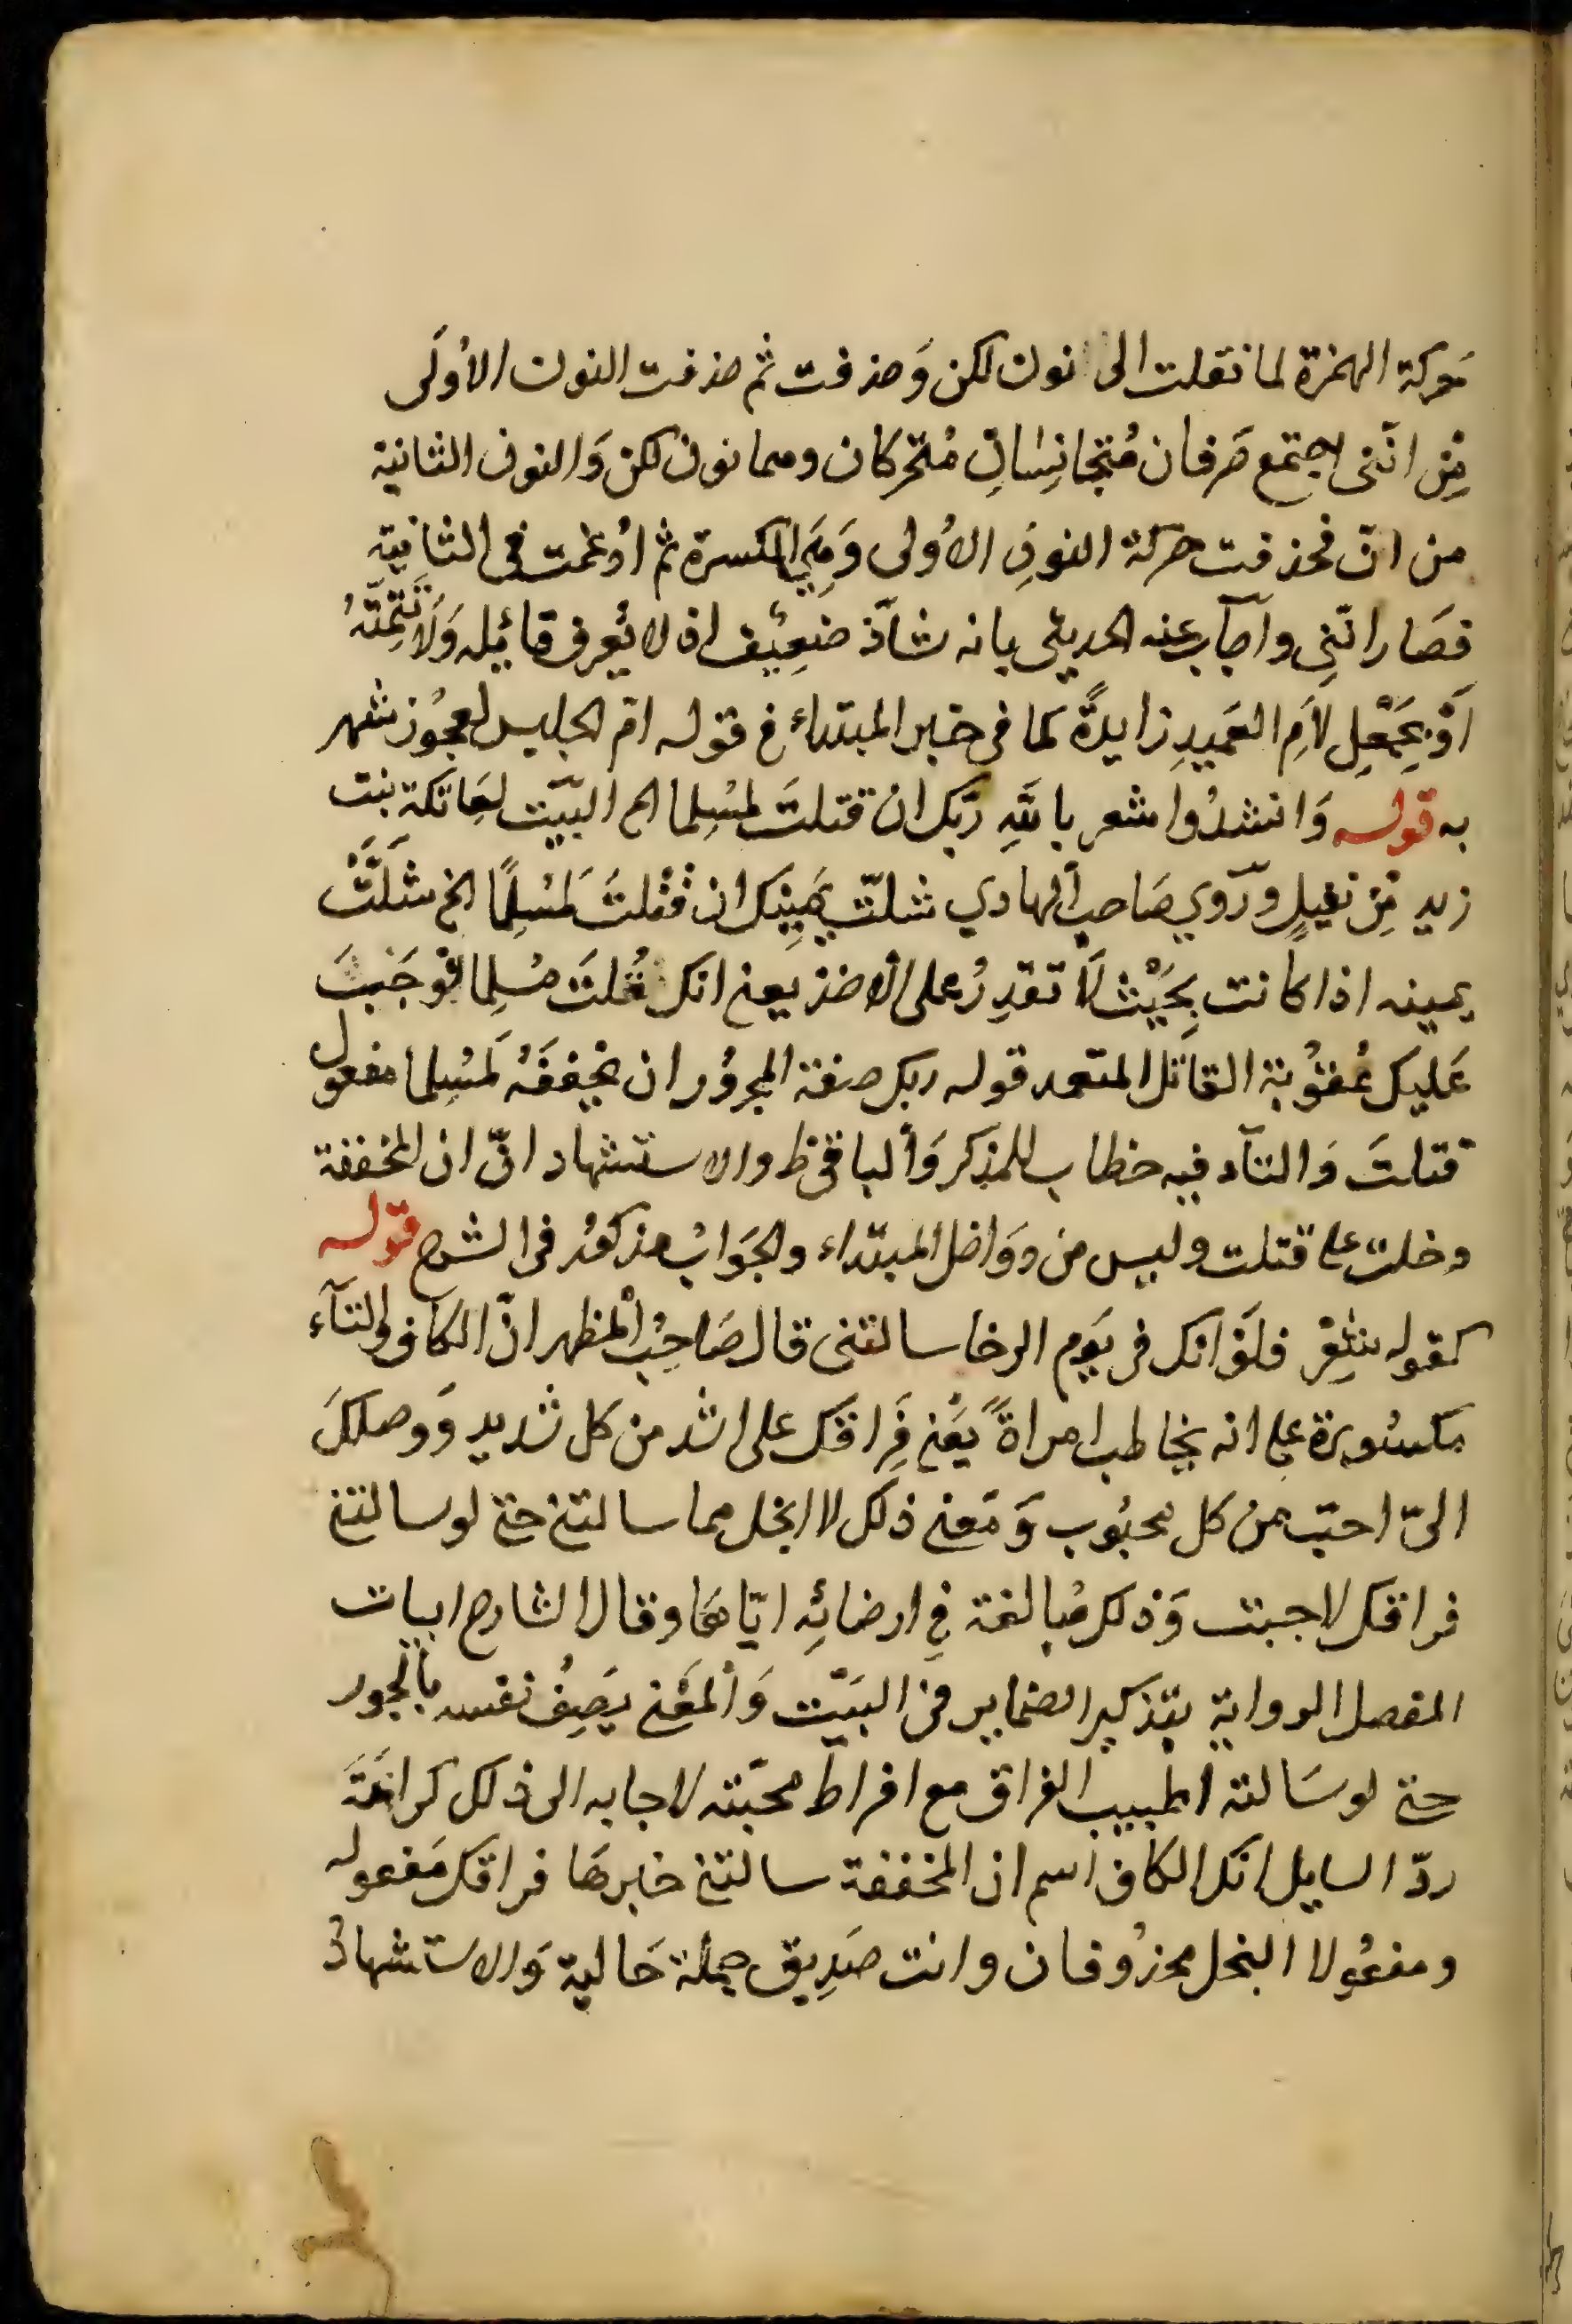 حركة الهمزة لما نقلت الى نون لكن وَحذفت ثم حذفت النون الاُولَى
مِن انّنى اجتمع حَرفان مُتجانِسَانِ مُتحركان وهما نون لكن وَالنون الثانية
من انّ فحذفت حركة النونِ الاُولى وَهِيَ الكسرة ثم ادُغمت فى الثانية
فصَار انّنِى واجَاب عنه الحديثى بانه شآذّ ضَعِيْف اذ لا يُعرف قائِله وَلَا تتِمَّتُهُ
اَوْ بِجَعْلِ لاَمِ العَمِيدِ زايدةً كما فى خبر المبتداء فى قوله ام الحليس لعجُوز شهر
به قوله وَانشدُوا شعر باللهِ ربّك ان قتلتَ لمُسِلما الخ البَيت لِعَاتكة بنت
زيد بْنِ نفيلٍ وَرَوي صَاحب الهادي شلّت يَمِينِك ان قَتْلتَ لَمُسْلِمًا الخ شَلَّتْ
يمينه اذا كانت بِحَيْث لَا تقدِرُ على الاخذ يعنى انك قتلتَ مُسِلما فوَجَبتَ
عَليك عُقوُبة القاتل المتعمد قوله ربك صفة المجرُور ان مخففَةُ لَمُسِلما مفعول
قتلتَ وَالتآء فيه خطاب للمذكر وَالباقى ظ والاستشهاد انّ ان المخففة
دخلت على قتلت وليس من دوَاخل المبتداء والجَوَابُ مذكوُر فى الشرح قوله
كقوله شِعْر فلَوْ انك فى يَوم الرخا سالتنى قال صَاحِبُ المظهر انّ الكاف والتآء
مكسُورة على انه يخاطب امراةً يَعْنى فِرَاقك على اشد من كل شديد وَوصلكَ
الىّ احبّ من كل محبُوب وَمَعنى ذلك لا ابخل مما سالتنى حتى لو سالتنى
فراقك لاجبت وَذلك مُبالغة فِى ارضائِه ايّاهَا وقال الشارح ابيات
المفصل الرواية بتذكير الضماير فى البَيْت وَالمَعْنى يَصِفُ نفسه بالجود
حتى لو سَالته الحبيب الفراق مع افراط محبّته لاجابه الى ذلك كراهَةَ
ردّ السايل انك الكاف اسم ان المخففة سالتنى خبرهَا فراقك مَفعوله
ومفعُولا البخل محذُوفان وانت صَدِيق جملة حَالية وَالاستشهادُ